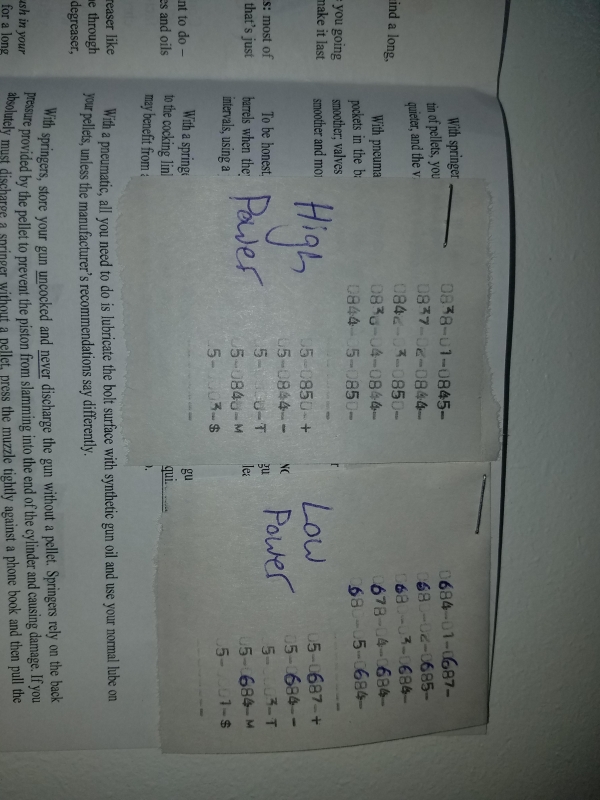 ind a long,
you going
make it last
s: most of
that's just
nt to do –
es and oils
reaser like
be through
degreaser,
ush in your
for a long
With springer
tin of pellets, you
quieter, and the v
With pneuma
pockets in the b
smoother; valves
smoother and mo
To be honest,
barrels when the
intervals, using a
With a spring
to the cocking lin
may benefit from
With a pneumatic, all you need to do is lubricate the bolt surface with synthetic gun oil and use your normal lube on
your pellets, unless the manufacturer's recommendations say differently.
With springers, store your gun uncocked and never discharge the gun without a pellet. Springers rely on the back
pressure provided by the pellet to prevent the piston from slamming into the end of the cylinder and causing damage. If you
absolutely must discharge a springer without a pellet, press the muzzle tightly against a phone book and then pull the
0838-01-0845-
0837-02-0844-
-03-0850-
-04-0844-
0844-05-0850-
High
Power
05-0850-+
05-0844--
-T
-M
-$
0684-01-0687-
-02-0685-
-03-0684-
0678-04-0684-
-05-0684-
Low
Power
05-0687-+
05-0684--
-T
05-0684-M
-$